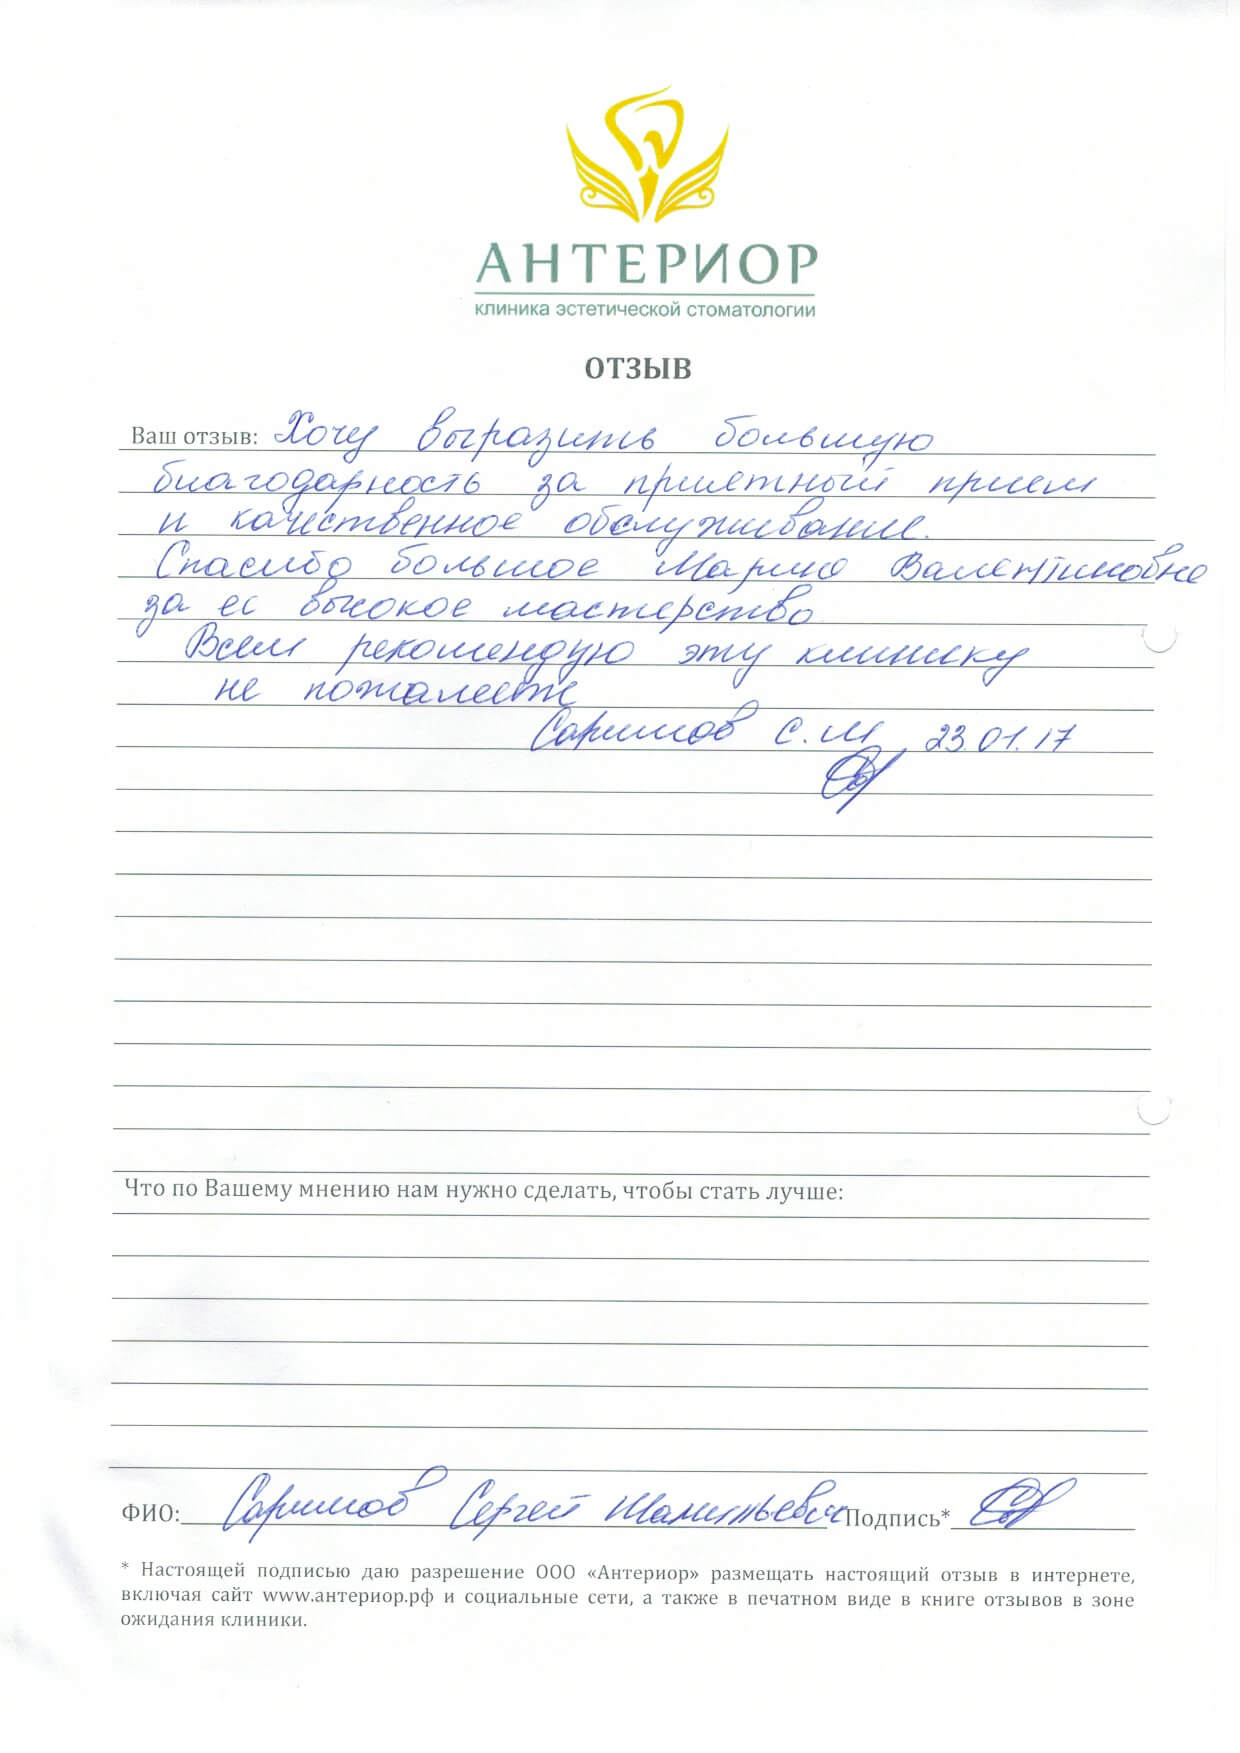 АНТЕРИОР
клиника эстетической стоматологии
ОТЗЫВ
Ваш отзыв: Хочу выразить большую
благодарность за приятный прием
и качественное обслуживание.
Спасибо большое Марие Валентиновне
за ее высокое мастерство
Всем рекомендую эту клинику
не пожалеете
Саримов С.М 23.01.17
Что по Вашему мнению нам нужно сделать, чтобы стать лучше:
ФИО: Саримов Сергей Подпись*
* Настоящей подписью даю разрешение ООО «Антериор» размещать настоящий отзыв в интернете,
включая сайт www.антериор.рф и социальные сети, а также в печатном виде в книге отзывов в зоне
ожидания клиники.